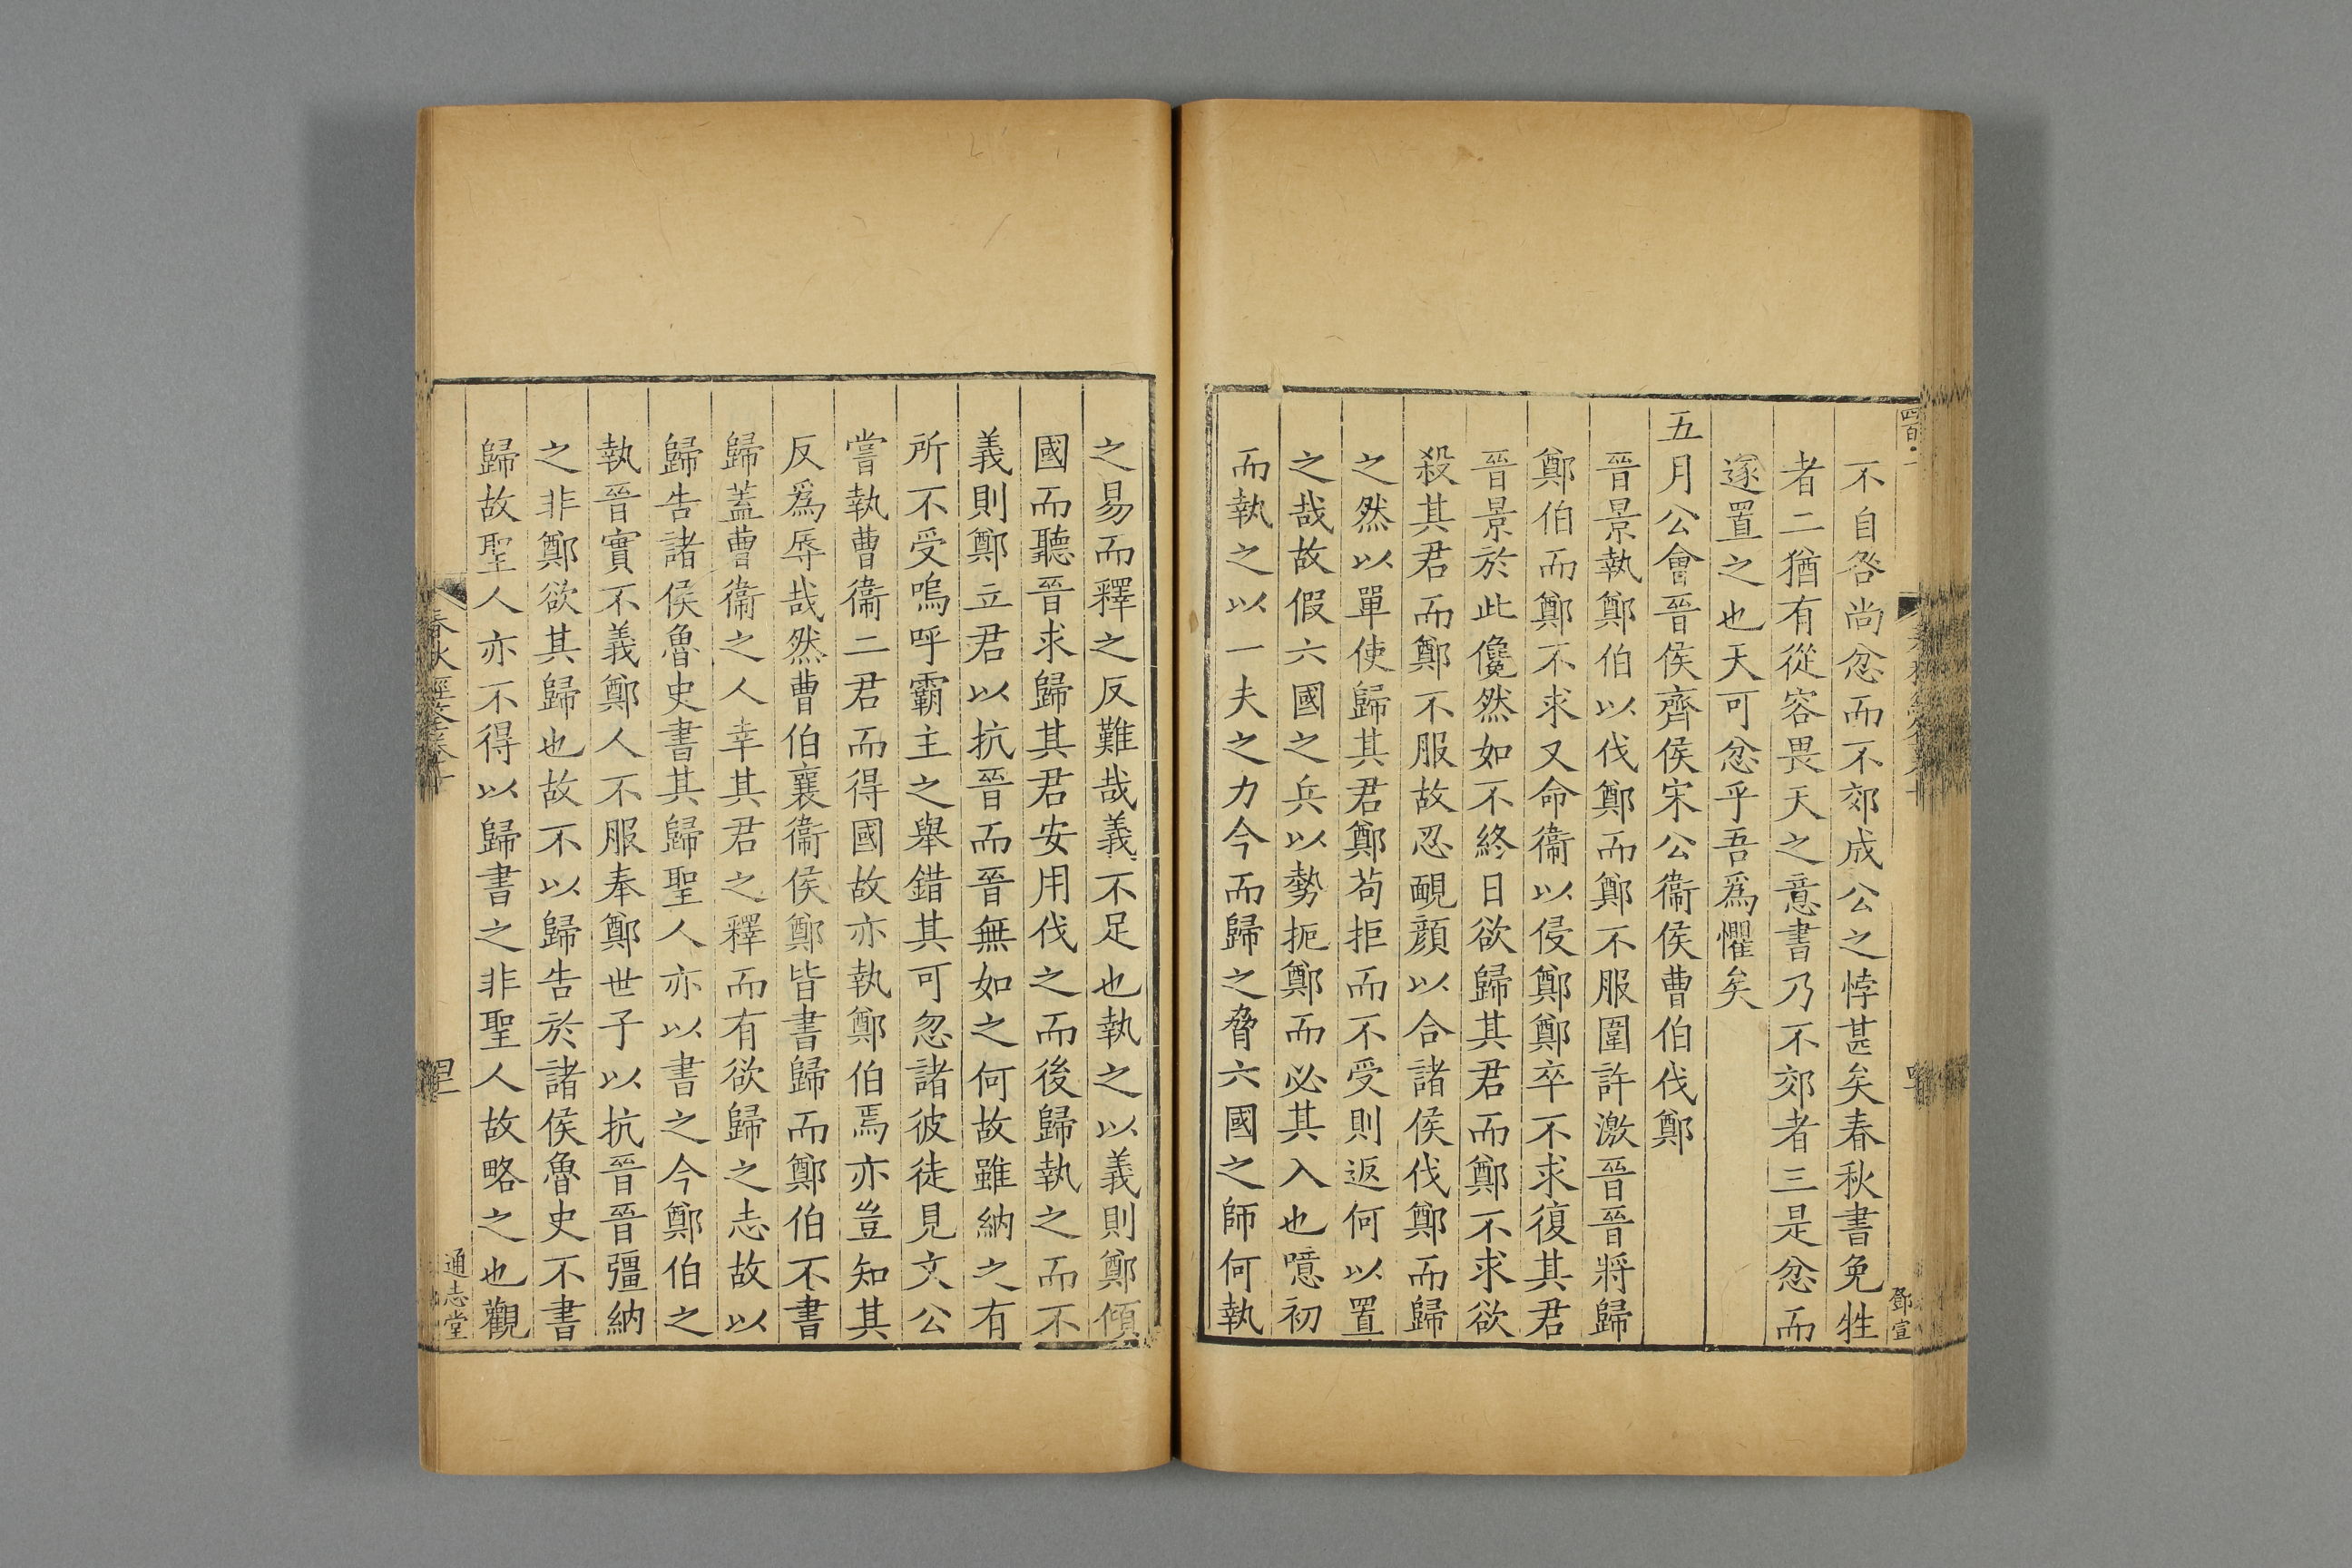 不自咎尚忿而不郊成公之悖甚矣春秋書免牲
者二猶有從容畏天之意書乃不郊者三是忿而
遂置之也天可忿乎吾爲懼矣
五月公會晉侯齊侯宋公衞侯曹伯伐鄭
晉景執鄭伯以伐鄭而鄭不服圍許激晉晉將歸
鄭伯而鄭不求又命衞以侵鄭鄭卒不求復其君
晉景於此儳然如不終日欲歸其君而鄭不求欲
殺其君而鄭不服故忍靦顔以合諸侯伐鄭而歸
之然以單使歸其君鄭苟拒而不受則返何以置
之哉故假六國之兵以勢扼鄭而必其入也噫初
而執之以一夫之力今而歸之脅六國之師何執
鄧宣
之易而釋之反難哉義不足也執之以義則鄭傾
國而聽晉求歸其君安用伐之而後歸執之而不
義則鄭立君以抗晉而晉無如之何故雖納之有
所不受嗚呼霸主之舉錯其可忽諸彼徒見文公
嘗執曹衞二君而得國故亦執鄭伯焉亦豈知其
反爲辱哉然曹伯襄衞侯鄭皆書歸而鄭伯不書
歸蓋曹衞之人幸其君之釋而有欲歸之志故以
歸告諸侯魯史書其歸聖人亦以書之今鄭伯之
執晉實不義鄭人不服奉鄭世子以抗晉晉彊納
之非鄭欲其歸也故不以歸告於諸侯魯史不書
歸故聖人亦不得以歸書之非聖人故略之也觀
通志堂